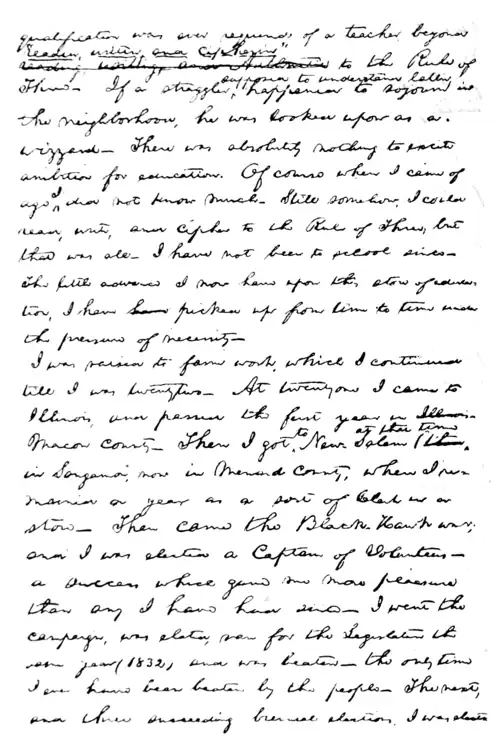 qualification was ever required of a teacher, beyond
"readin, writin, and cipherin"
reading writing, and Arithmetic to the Rule of
supposed to understand latin,
Three— If a straggler happened to sojourn in
the neighborhood, he was looked upon as a
wizzard— There was absolutely nothing to excite
ambition for education. Of course when I came of
age I did not know much— Still somehow, I could
read, write, and cipher to the Rule of Three, but
that was all— I have not been to school since—
The little advance I now have upon this store of educa-
tion, I have picked up from time to time under
the pressure of necessity—
I was raised to farm work, which I continued
till I was twentytwo— At twentyone I came to
Illinois, and passed the first year in Illinois
Macon county— Then I got to New-Salem (then,
at that time
in Sangamon, now in Menard County, where I re-
mained a year as a sort of Clerk in a
store— Then came the Black-Hawk war;
and I was elected a Captain of Volunteers—
a success which gave me more pleasure
than any I have had since— I went the
campaign, was elated, ran for the Legislature the
same year (1832) and was beaten— the only time
I ever have been beaten by the people— The next,
and three succeeding biennial elections, I was elected